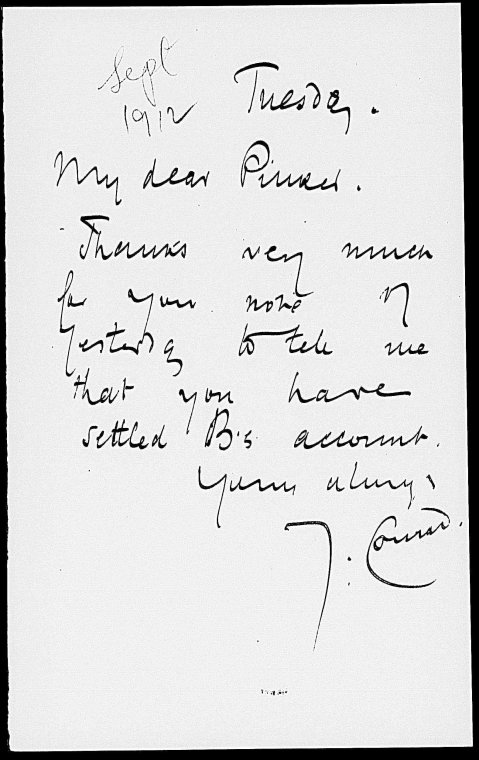 Sept
1912
Tuesday.
My dear Pinker.
Thanks very much
for your note of
Yesterday to tell me
that you have
settled B's account.
Yours always
J. Conrad.